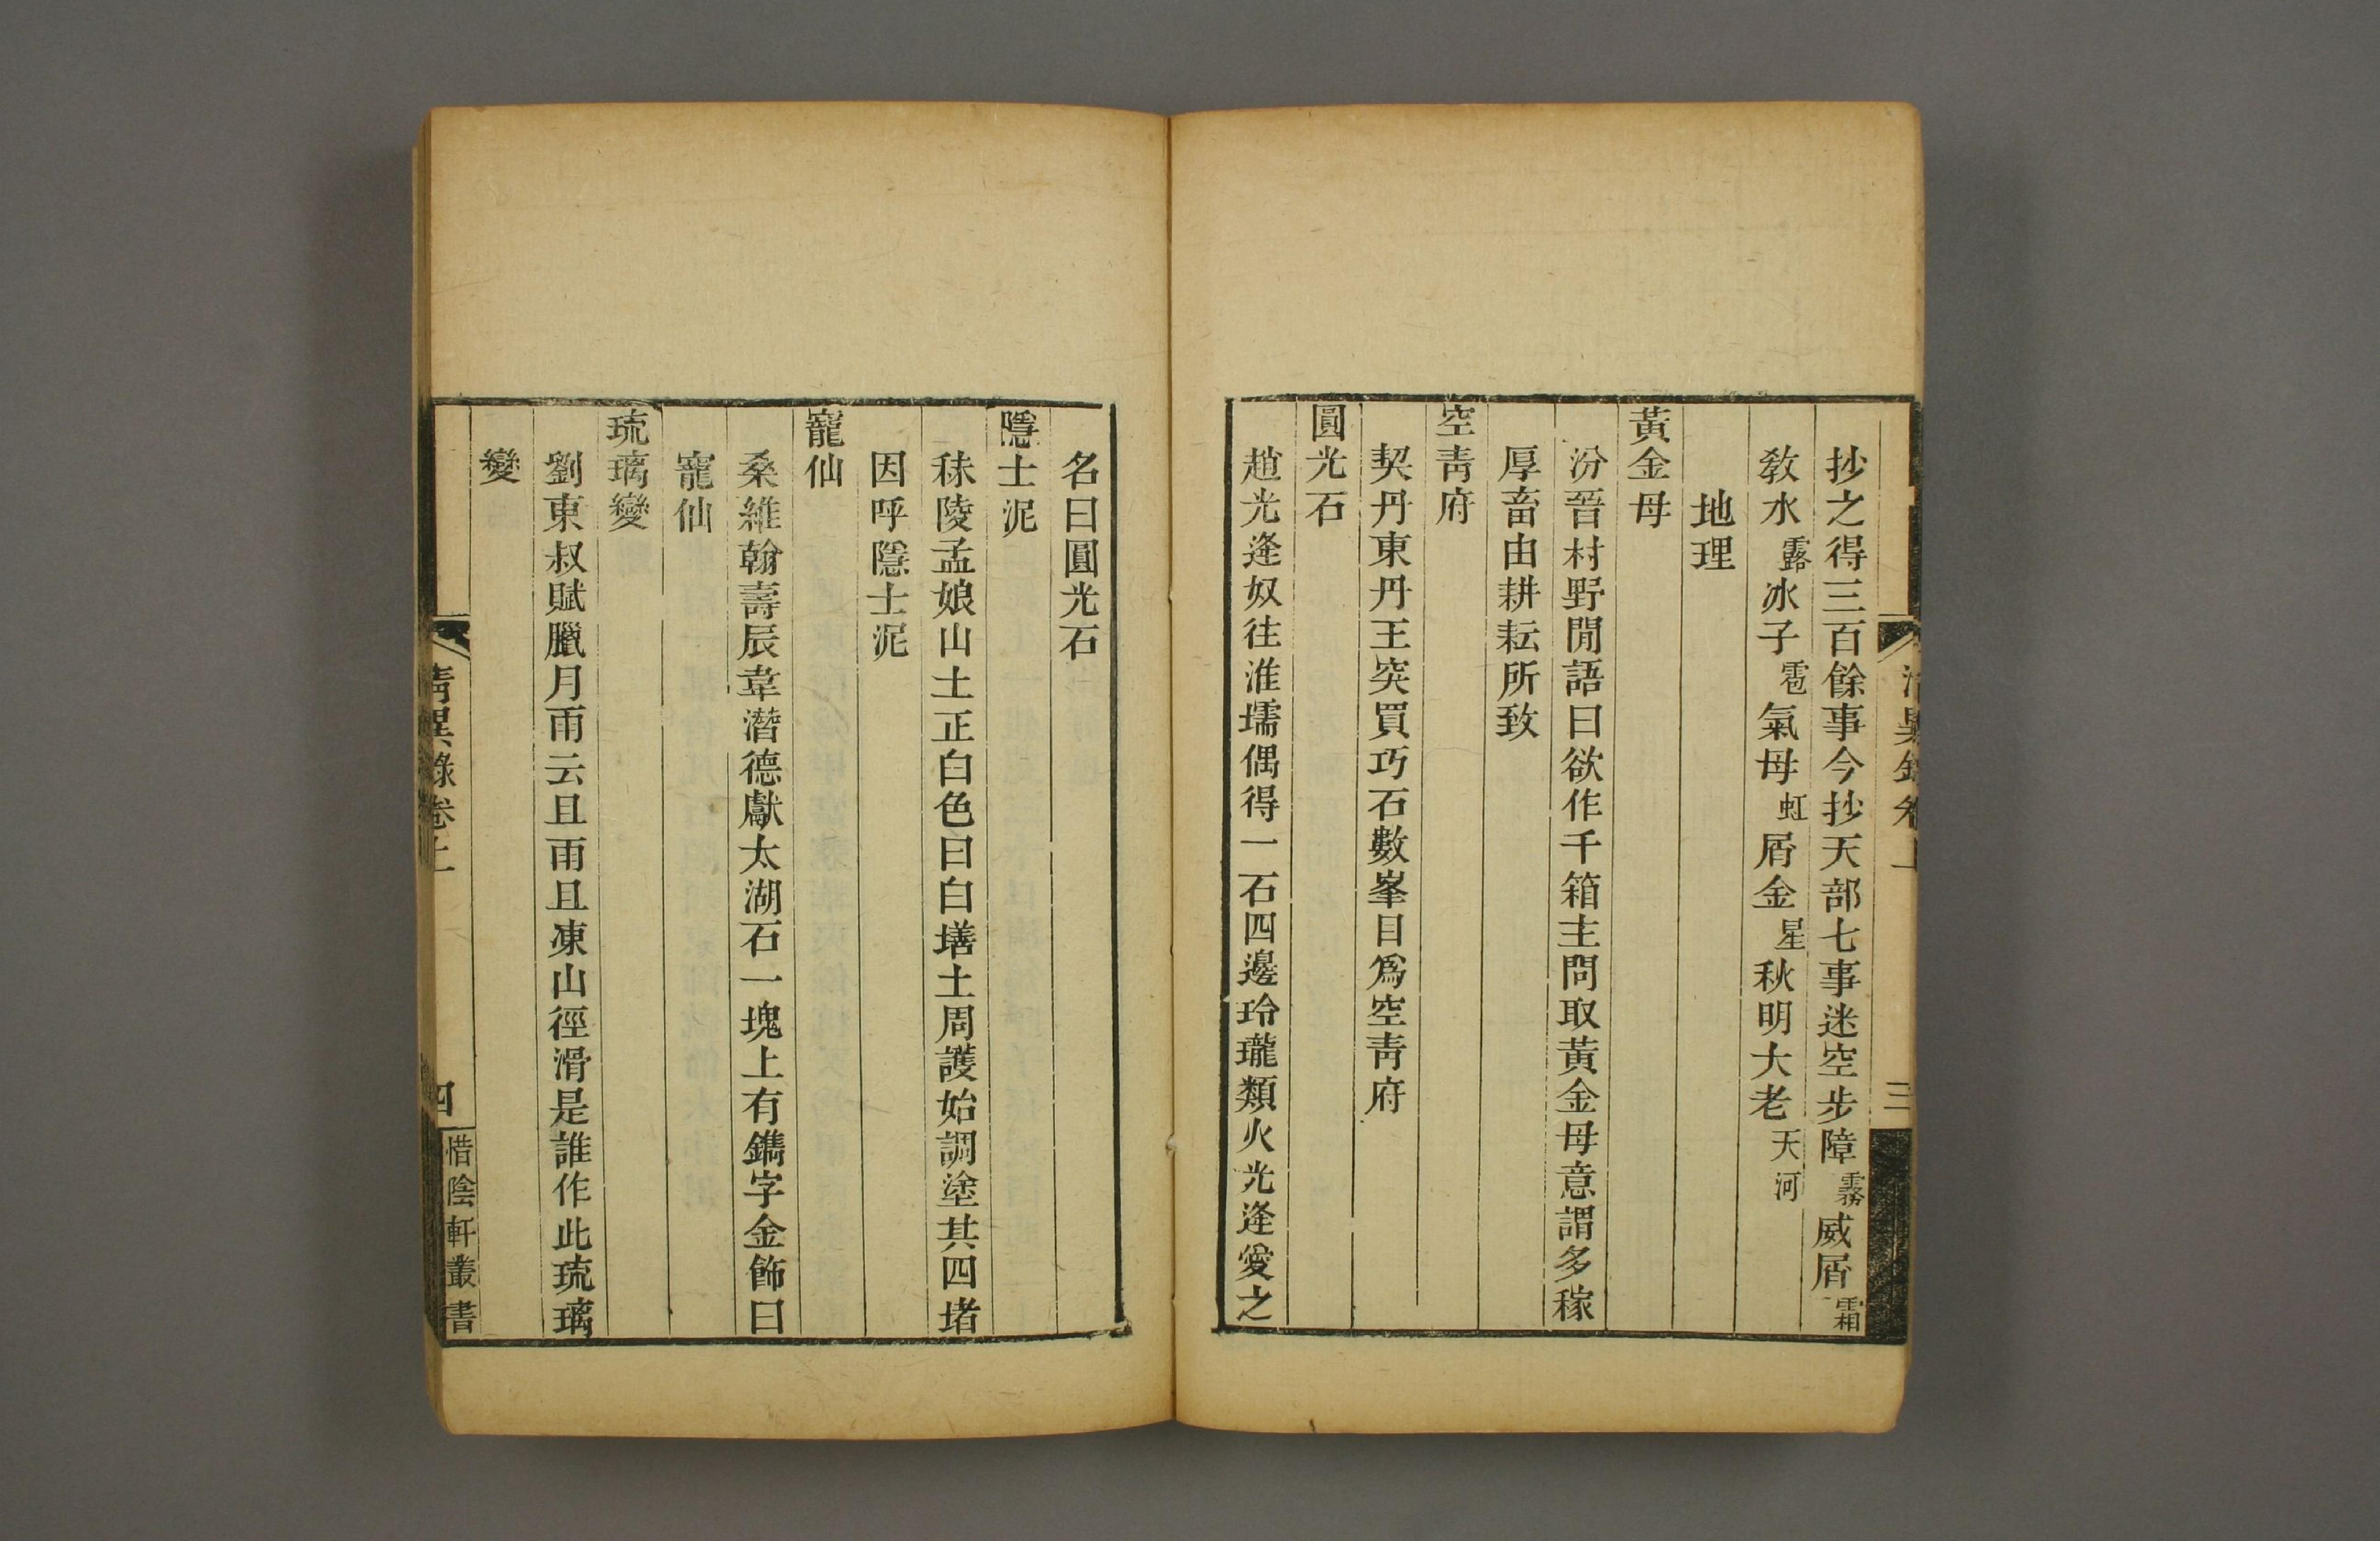 抄之得三百餘事今抄天部七事迷空步障霧威屑霜
教水露冰子雹氣母虹屑金星秋明大老天河
地理
黃金母
汾晉村野閒語曰欲作千箱主問取黃金母意謂多稼
厚畜由耕耘所致
空靑府
契丹東丹王突買巧石數峯目爲空靑府
圓光石
趙光逢奴往淮壖偶得一石四邊玲瓏類火光逢愛之
淸異錄卷上
三
名曰圓光石
隱士泥
秣陵孟娘山土正白色曰白墡土周護始調塗其四堵
因呼隱士泥
寵仙
桑維翰壽辰韋潛德獻太湖石一塊上有鐫字金飾曰
寵仙
琉璃變
劉東叔賦臘月雨云且雨且凍山徑滑是誰作此琉璃
變
淸異錄卷上
四
惜陰軒叢書